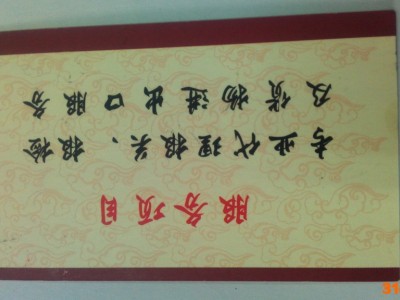 服务项目
专业代理报关、报检
及货物进出口服务
31